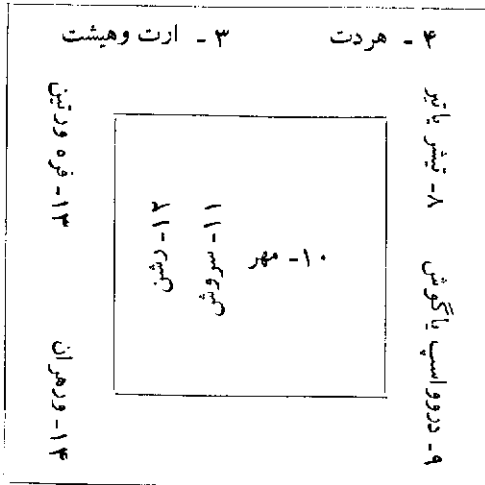 ۴ - هردت
۳ - ارت وهیشت
۸- تیشتر یاتیر
۹- درواسپ یاگوش
۱۰- مهر
۱۱- سروش
۱۲- رشن
۱۳- فره ورتین
۱۴- ورهران